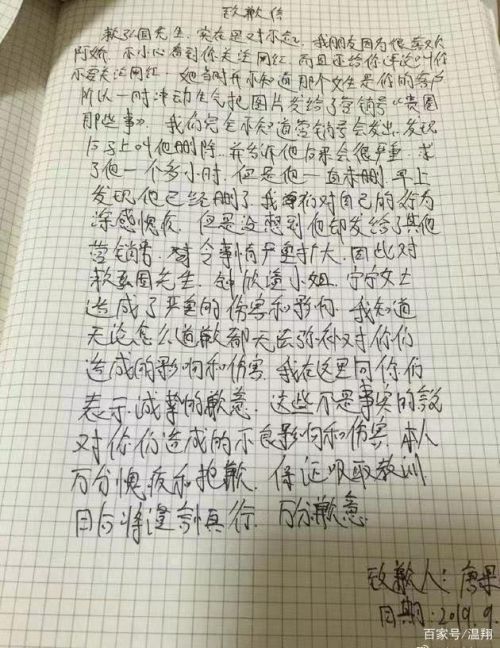 致歉信
赖弘国先生,实在是对不起,我朋友因为很喜欢
阿娇,不小心看到你关注网红,而且还给你评论叫你
不要关注网红,她当时并不知道那个女生是你的客户
所以一时冲动生气把图片发给了营销号《贵圈
那些事》,我们完全不知道营销号会发出,发现
后马上叫他删除,并告诉他后果会很严重,求
了他一个多小时,但是他一直未删,早上
发现他已经删了,我们对自己的行为
深感愧疚,但是没想到他却发给了其他
营销号,令事情严重扩大,因此对
赖弘国先生,钟欣潼小姐,宁宁女士
造成了严重的伤害和影响,我知道
无论怎么道歉都无法弥补对你们
造成的影响和伤害,我在这里向你们
表示诚挚的歉意,这些不是事实的说
对你们造成的不良影响和伤害,本人
万分愧疚和抱歉,保证吸取教训
日后将谨言慎行,万分歉意
致歉人:唐果
日期:2019.9.
百家号/温翔